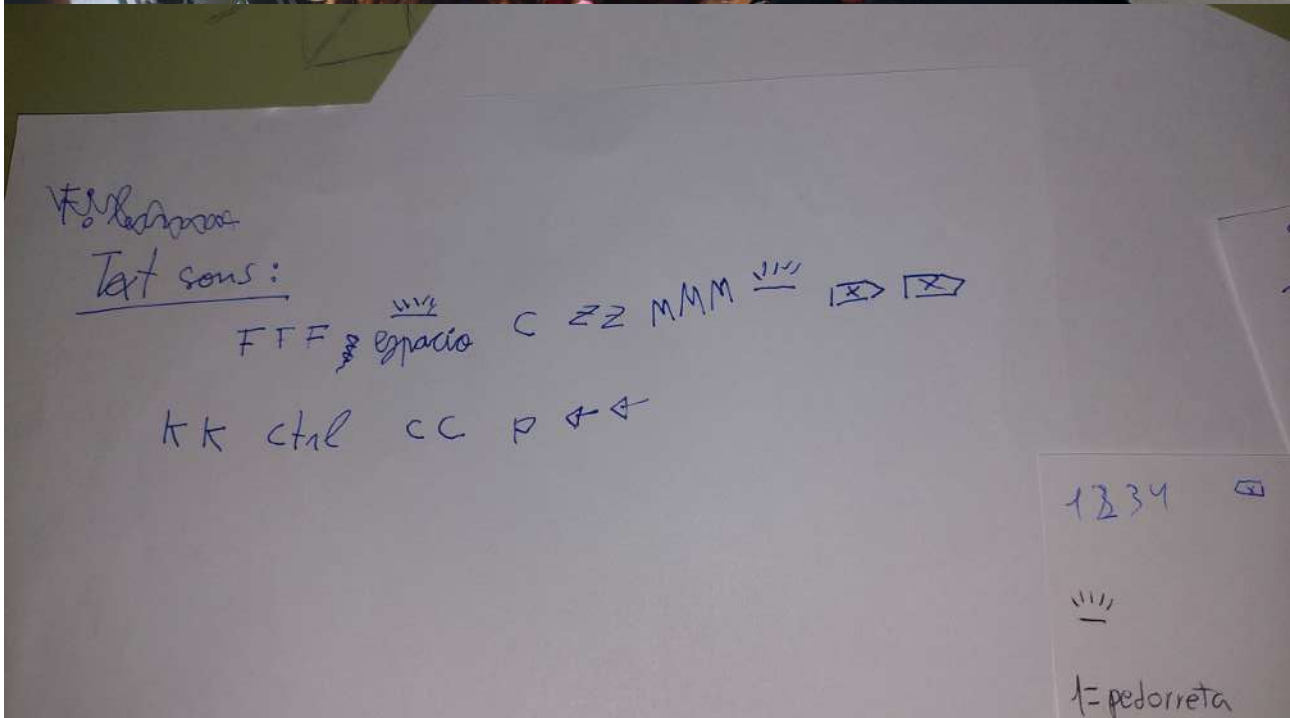 Text sons:
FFF espacio C ZZ MMM
KK ctrl CC P
1234
1=pedorreta